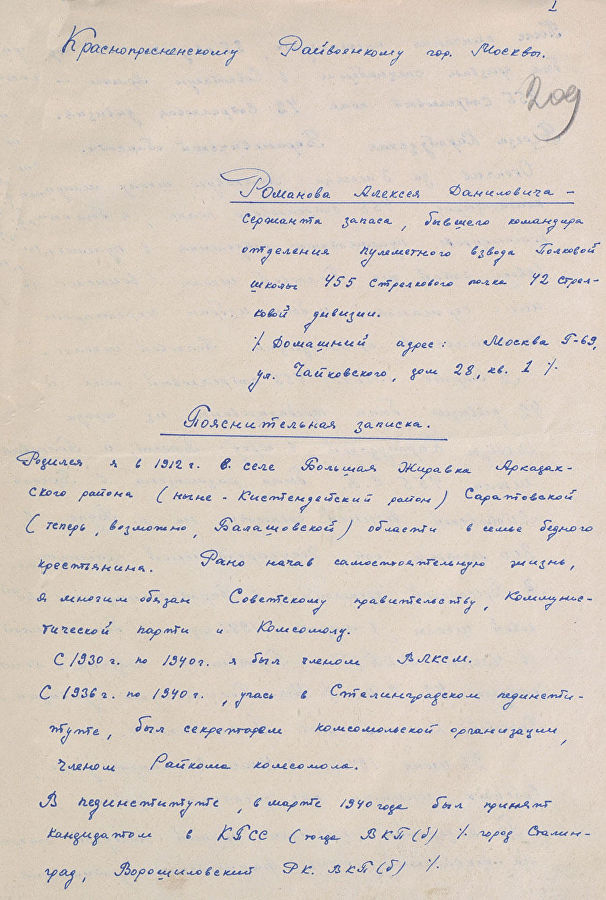 I
Краснопресненскому Райвоенкому гор. Москвы.
209
Романова Алексея Даниловича –
сержанта запаса, бывшего командира
отделения пулеметного взвода Полковой
школы 455 стрелкового полка 42 стрел-
ковой дивизии.
/. Домашний адрес: Москва Г-69,
ул. Чайковского, дом 28, кв. 1 /.
Пояснительная записка.
Родился я в 1912 г. в селе Большая Журавка Аркадак-
ского района (ныне - Кистендейский район) Саратовской
(теперь, возможно, Балашовской) области в семье бедного
крестьянина. Рано начав самостоятельную жизнь,
я многим обязан Советскому правительству, Коммунис-
тической парти и Комсомолу.
С 1930 г. по 1940 г. я был членом ВЛКСМ.
С 1936 г. по 1940 г., учась в Сталинградском пединсти-
туте, был секретарем комсомольской организации,
членом Райкома комсомола.
В пединституте, в марте 1940 года был принят
кандидатом в КПСС (тогда ВКП(б) /. город Сталин-
град, Ворошиловский РК. ВКП(б) /.